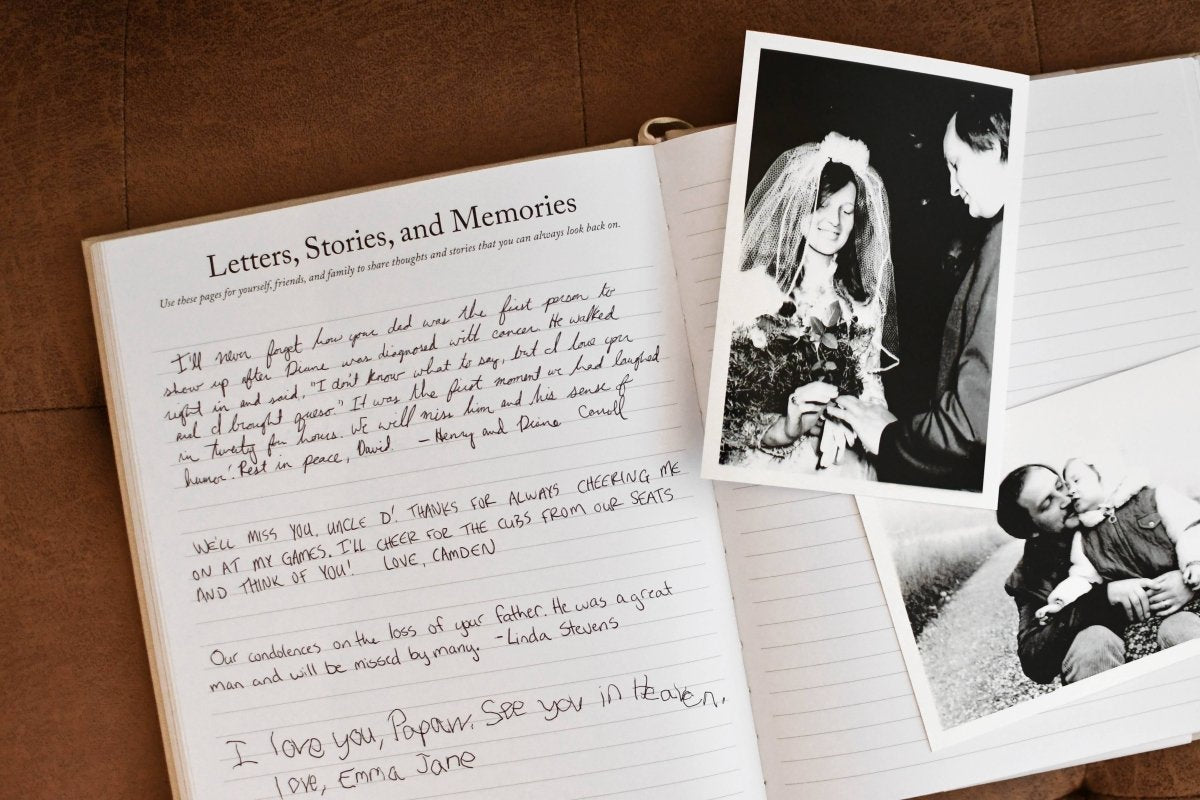 Letters, Stories, and Memories
Use these pages for yourself, friends, and family to share thoughts and stories that you can always look back on.
I'll never forget how your dad was the first person to
show up after Diane was diagnosed with cancer. He walked
right in and said, "I don't know what to say, but I love you
and I brought queso." It was the first moment we had laughed
in twenty four hours. We will miss him and his sense of
humor! Rest in peace, David. – Henry and Diane Carroll
WE'LL MISS YOU, UNCLE D! THANKS FOR ALWAYS CHEERING ME
ON AT MY GAMES. I'LL CHEER FOR THE CUBS FROM OUR SEATS
AND THINK OF YOU! LOVE, CAMDEN
Our condolences on the loss of your father. He was a great
man and will be missed by many. -Linda Stevens
I love you, Papaw. See you in Heaven.
Love, Emma Jane